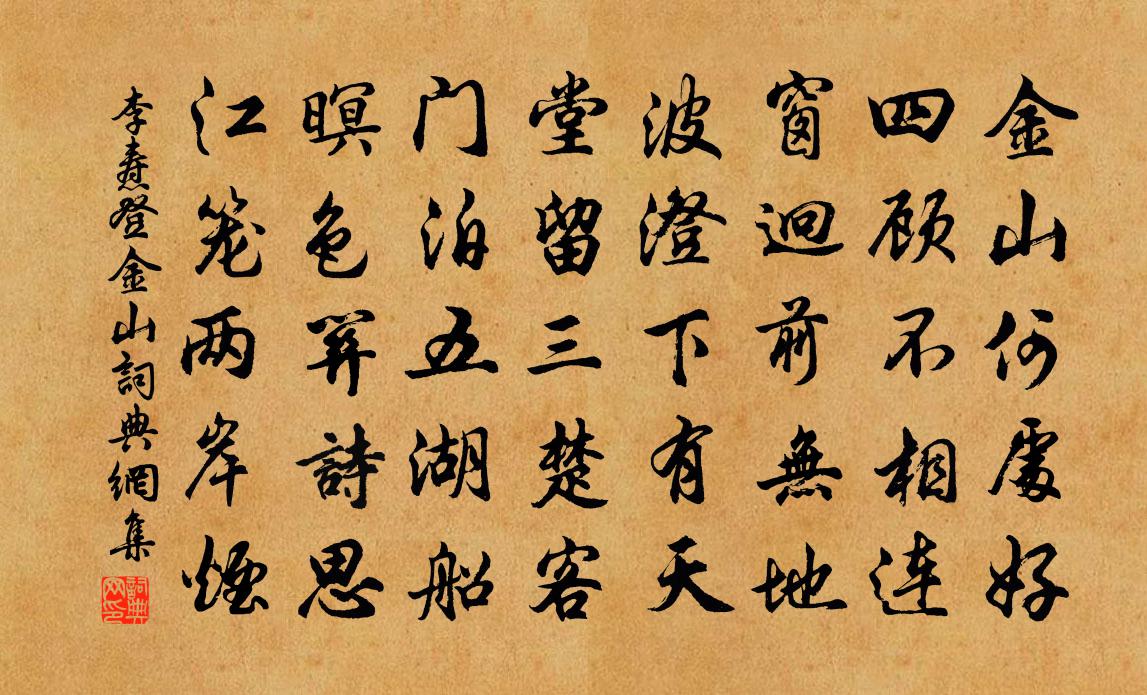 金山何處好
四顾不相連
窗迴前無地
波澄下有天
堂留三楚客
门泊五湖船
暝色詩思
江笼两岸煙
李焘登金山詞典網集
詞典
网印